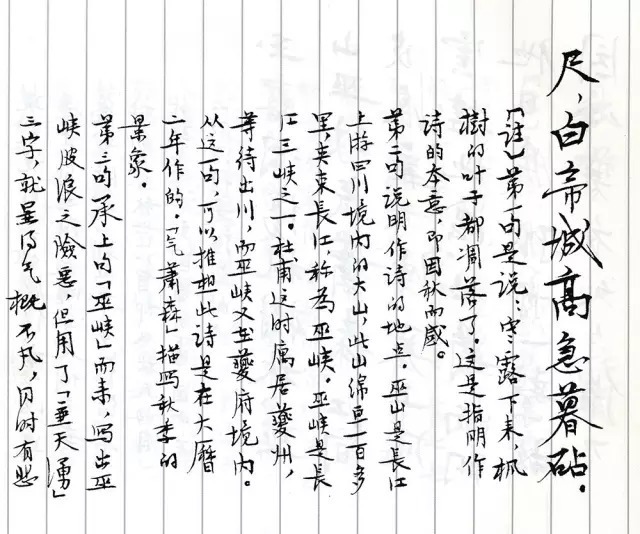 尺，白帝城高急暮砧．
「註」第一句是说：寒露下来，枫
樹的叶子都凋落了。这是指明作
诗的本意，即因秋而感。
第二句说明作诗的地点。巫山是長江
上游四川境内的大山，此山绵亘一百多
里，夹束長江，称為巫峡。巫峡是長
江三峡之一。杜甫这时寓居夔州，
等待出川，而巫峡又在夔府境内。
从这一句，可以推想此诗是在大曆
二年作的。「气蕭森」描写秋季的
景象。
第三句承上句「巫峡」而来，写出巫
峡波浪之險惡，但用了「兼天湧」
三字，就显得气概不凡，同时有悲